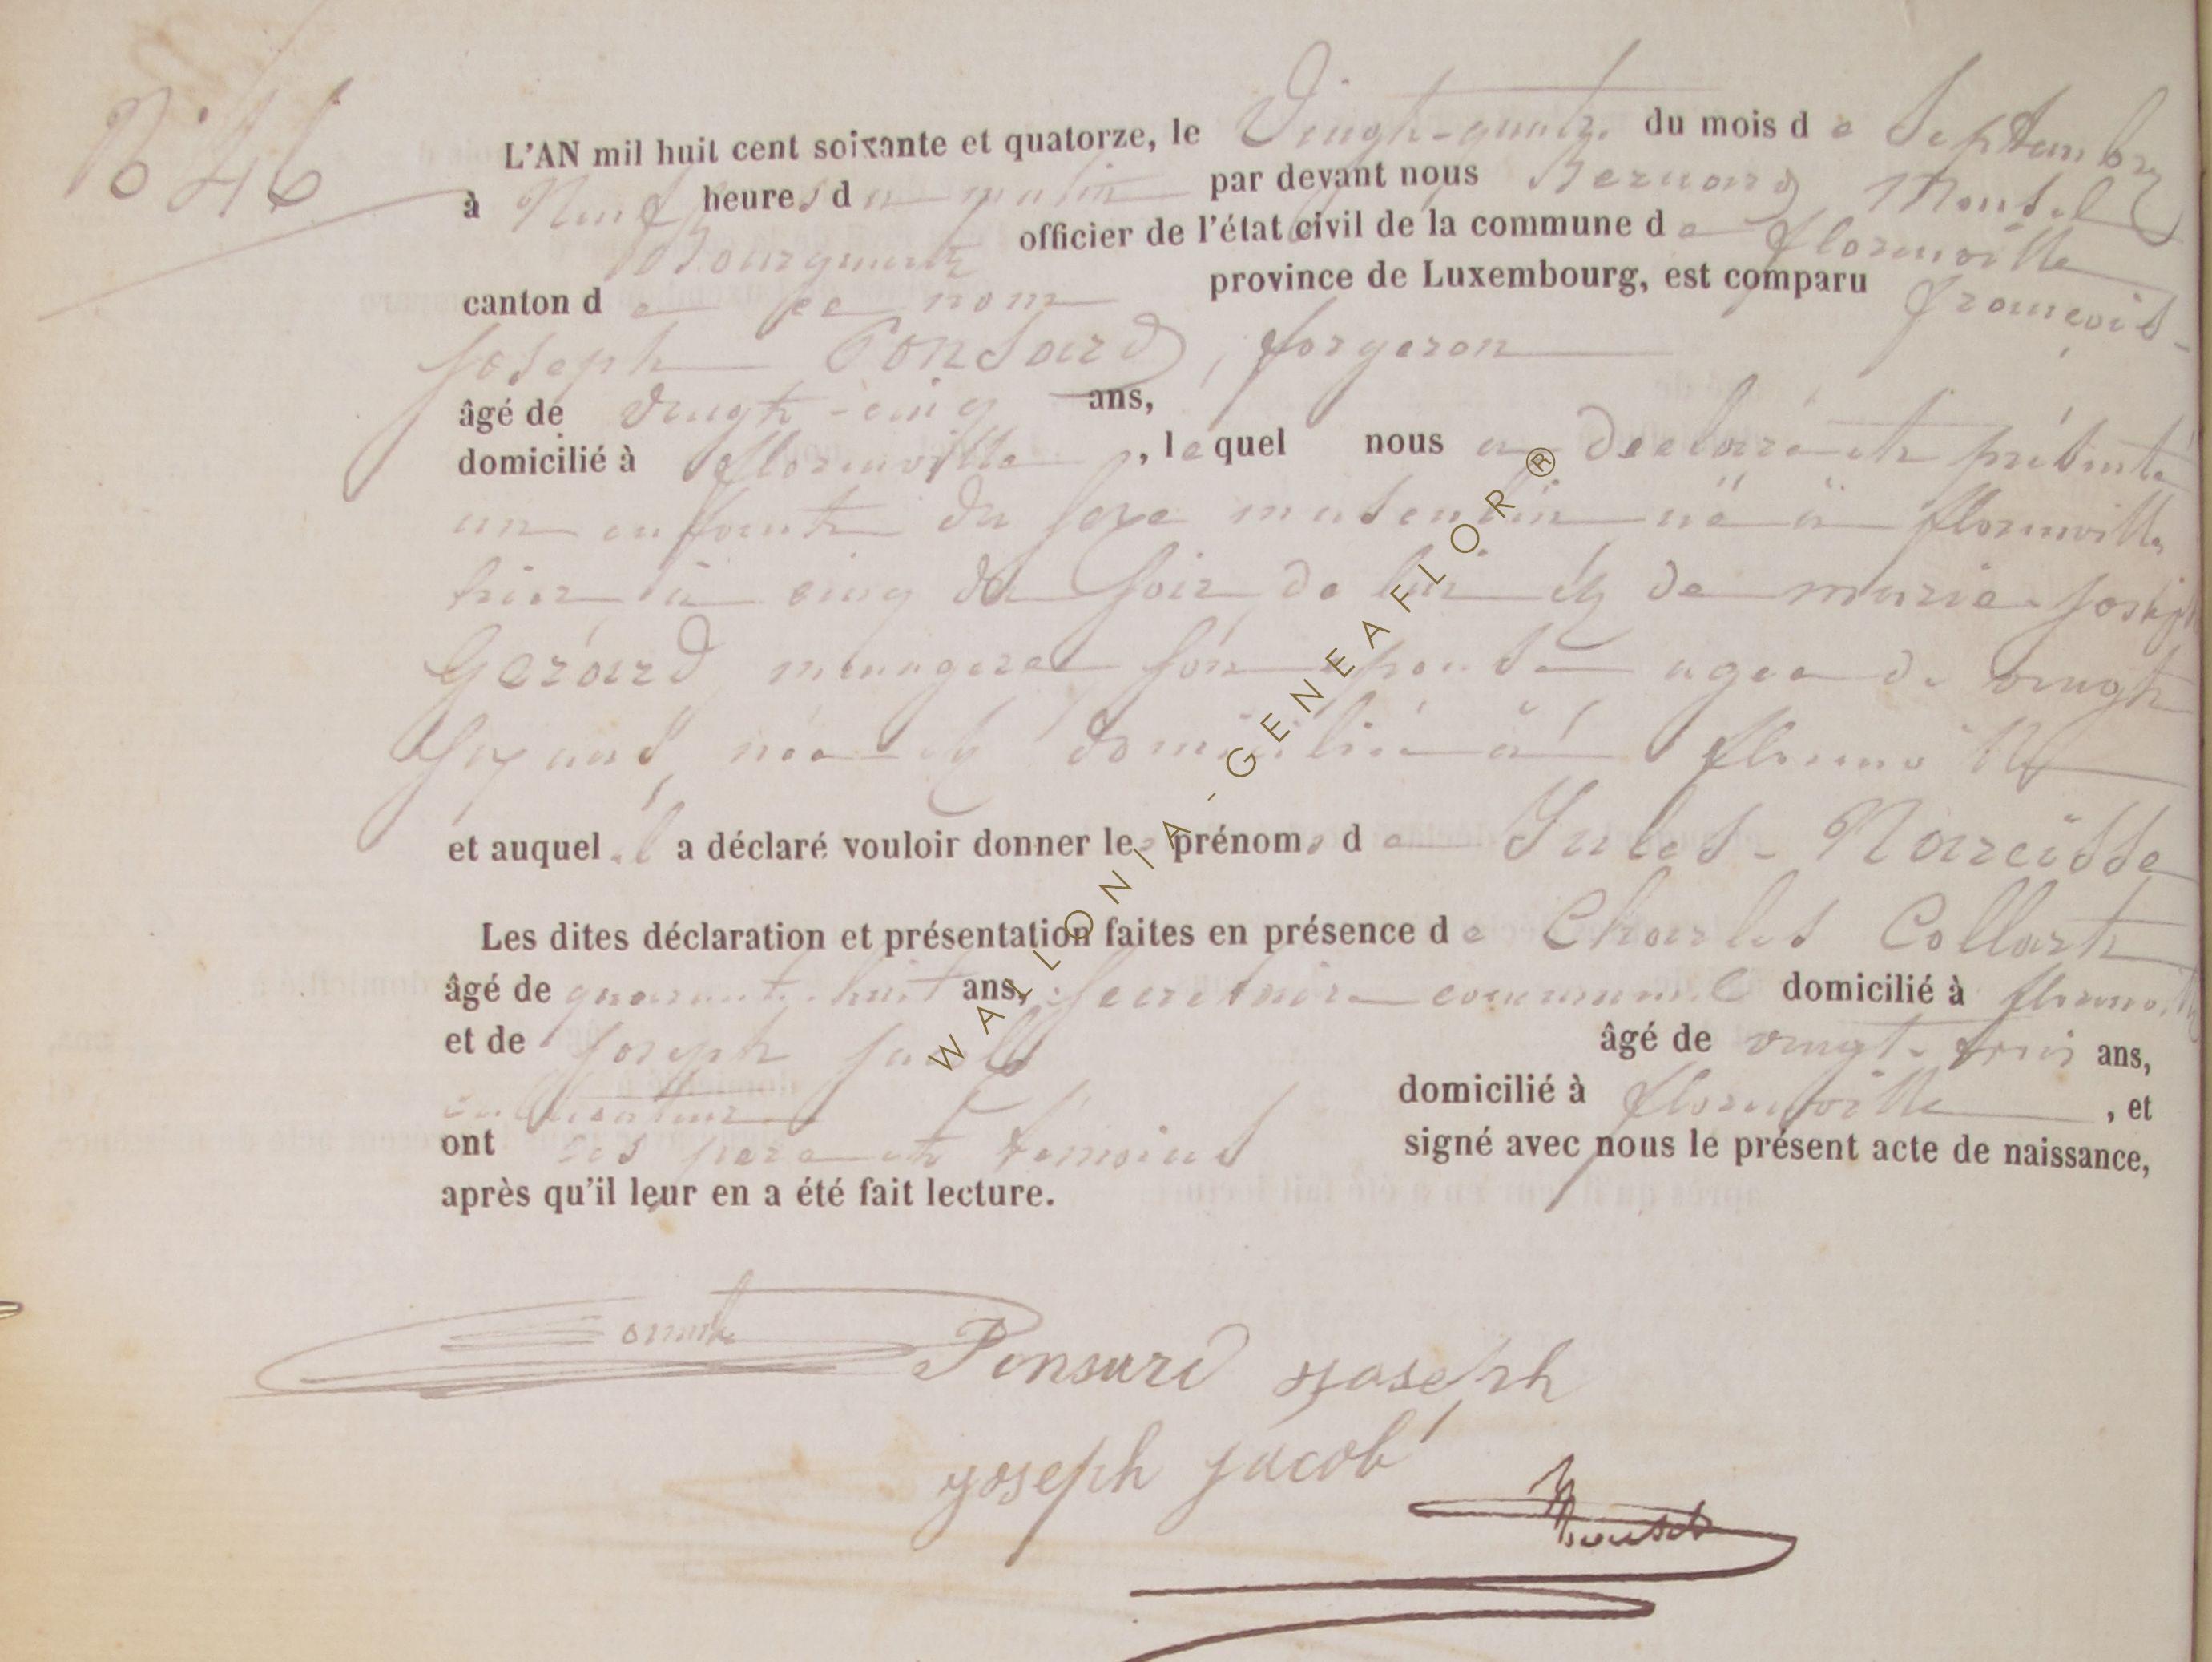 N° 46
L'AN mil huit cent soixante et quatorze, le Vingt-quatre du mois de Septembre
à Neuf heures du matin par devant nous Bernard Mousel
Bourgmestre officier de l'état civil de la commune de florenville
canton de ce nom province de Luxembourg, est comparu françois-
joseph Ponsard, forgeron
âgé de vingt-cinq ans,
domicilié à florenville, lequel nous a declaré et présenté
un enfant du sexe masculin né à florenville
hier à cinq du soir de lui et de marie-joseph
Gérard, menagere son epouse agee de vingt
six ans, née et domiciliée à florenville
et auquel il a déclaré vouloir donner les prénoms de Jules-Narcisse
Les dites déclaration et présentation faites en présence de Charles Collart
âgé de quarante-huit ans, secretaire communal domicilié à florenville
et de joseph âgé de vingt-trois ans,
cultivateur domicilié à florenville, et
ont les pere et témoins signé avec nous le présent acte de naissance,
après qu'il leur en a été fait lecture.
Ponsard joseph
joseph jacob
WALLONIA-GENEAFLOR®